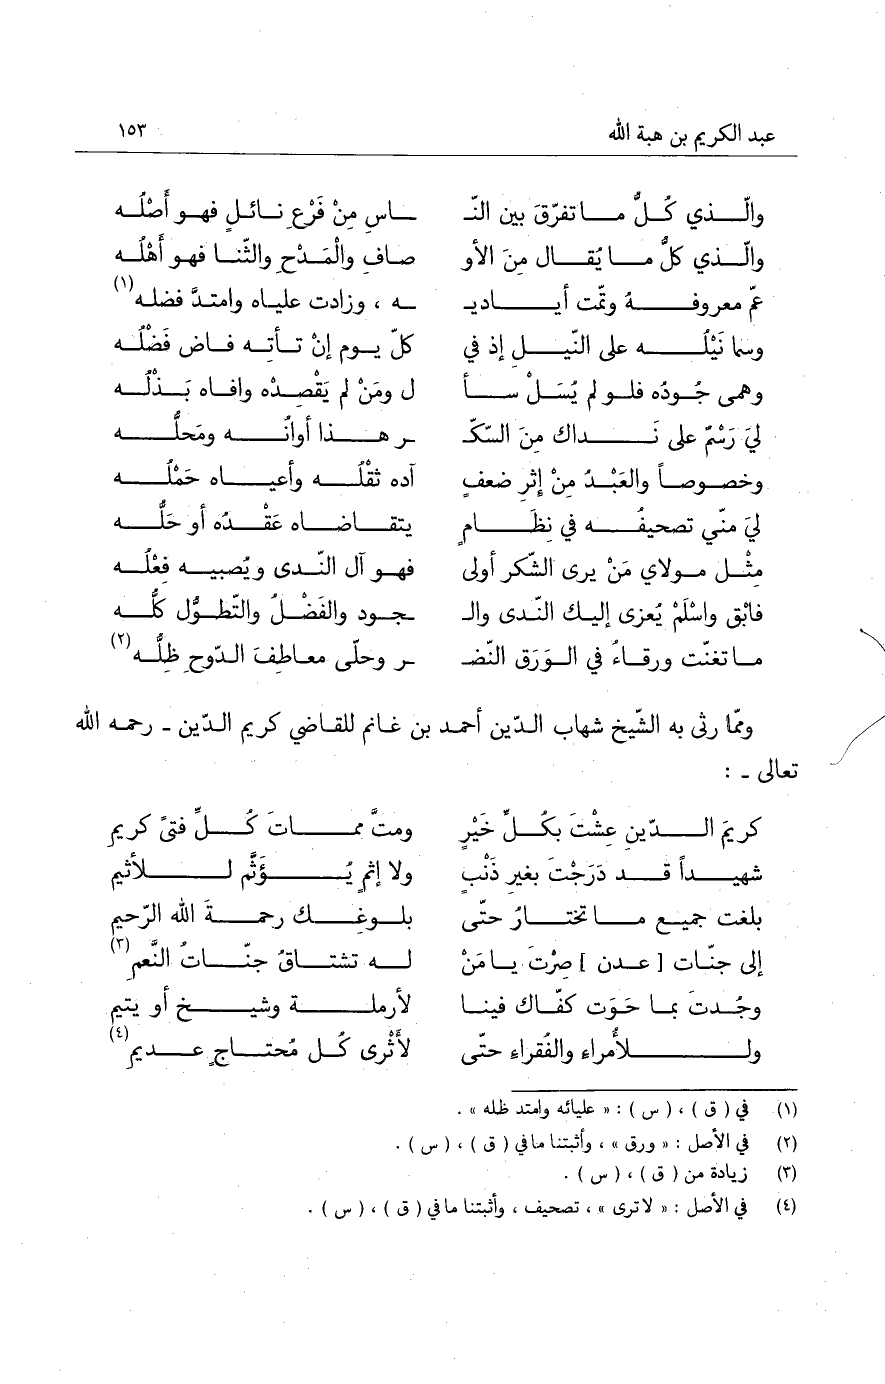 عبد الكريم بن هبة الله ١٥٣
والّذي كُلُّ ما تفرّقَ بين النّـ ـاسِ مِنْ فَرْعِ نائلٍ فهو أَصْلُه
والّذي كلُّ ما يُقال مِنَ الأو صافِ والْمَدْحِ والثّنا فهو أَهْلُه
عمّ معروفهُ وتمّت أياديـ ـه ، وزادت علياه وامتدَّ فضله(١)
وسما نَيْلُه على النّيل إذ في كلّ يوم إنْ تأته فاض فَضْلُه
وهمى جُودُه فلو لم يُسَلْ سأ ل ومَنْ لم يَقْصِدْه وافاه بَذْلُه
ليَ رَسْمٌ على نَداك مِنَ السّكّـ ـر هذا أوانُه ومَحلُّه
وخصوصاً والعَبْدُ مِنْ إثْرِ ضعفٍ آده ثقْلُه وأعياه حَمْلُه
ليَ منّي تصحيفُه في نظامٍ يتقاضاه عَقْدُه أو حَلُّه
مثْل مولاي مَنْ يرى الشّكر أولى فهو آل النّدى ويُصبيه فعْلُه
فابْق واسْلَمْ يُعزى إليك النّدى والـ ـجود والفَضْلُ والتّطوُّل كلُّه
ما تغنّت ورقاءُ في الوَرَق النّضـ ـر وحلّى معاطِفَ الدّوحِ ظِلُّه(٢)
وممّا رثى به الشّيخ شهاب الدّين أحمد بن غانم للقاضي كريم الدّين ـ رحمه الله
تعالى ـ :
كريمَ الدّينِ عِشْتَ بكُلِّ خَيْرٍ ومتَّ مماتَ كُلِّ فتىً كريمِ
شهيداً قد دَرَجْتَ بغيرِ ذَنْبٍ ولا إثمٍ يُؤَثَّم للأثيم
بلغت جميع ما تختارُ حتّى بلوغك رحمةَ الله الرّحيمِ
إلى جنّات [ عدن ] صِرْتَ يا مَنْ له تشتاقُ جنّاتُ النَّعيم(٣)
وجُدتَ بما حَوَت كفّاك فينا لأرملة وشيخ أو يتيم
وللأُمراء والفُقراء حتّى لأَثْرى كُل مُحتاجٍ عديمِ(٤)
(١) في ( ق ) ، ( س ) : « عليائه وامتد ظله » .
(٢) في الأصل : « ورق » ، وأثبتنا ما في ( ق ) ، ( س ) .
(٣) زيادة من ( ق ) ، ( س ) .
(٤) في الأصل : « لا ترى » ، تصحيف ، وأثبتنا ما في ( ق ) ، ( س ) .